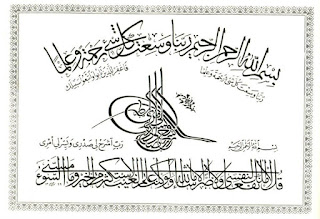 بسم الله الرحمن الرحيم ربنا وسعت كل شيء رحمة وعلما
فاغفر للذين تابوا واتبعوا سبيلك
بسم الله الرحمن الرحيم
رب اشرح لي صدري ويسر لي أمري
قل لا أملك لنفسي نفعا ولا ضرا إلا ما شاء الله ولو كنت أعلم الغيب لاستكثرت من الخير وما مسني السوء